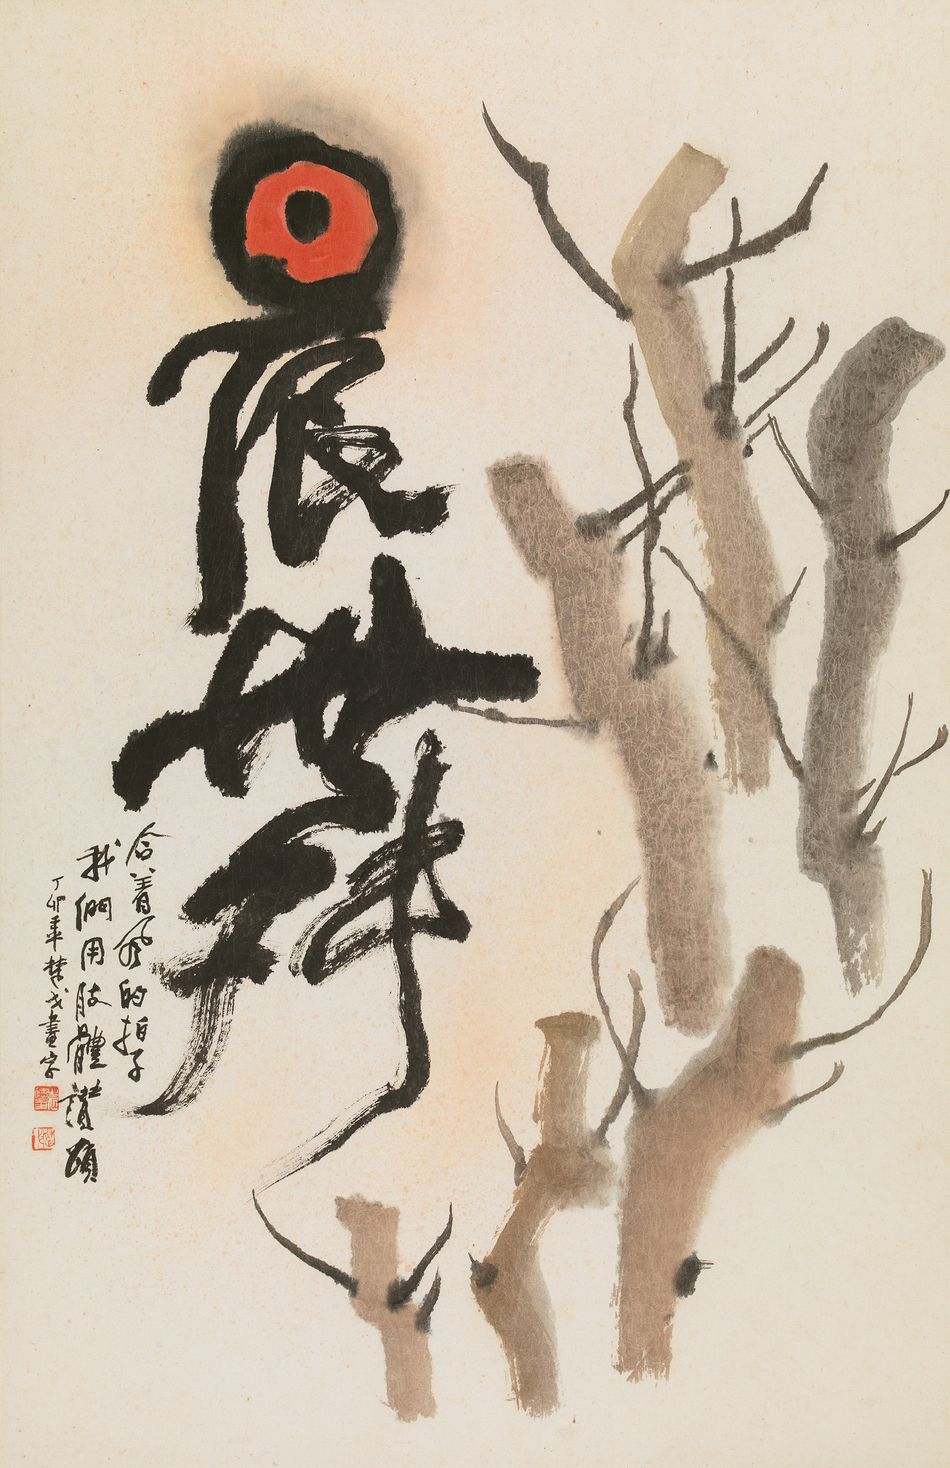 晨舞
合着風的拍子
我們用肢體讚頌
丁卯年楚戈畫字